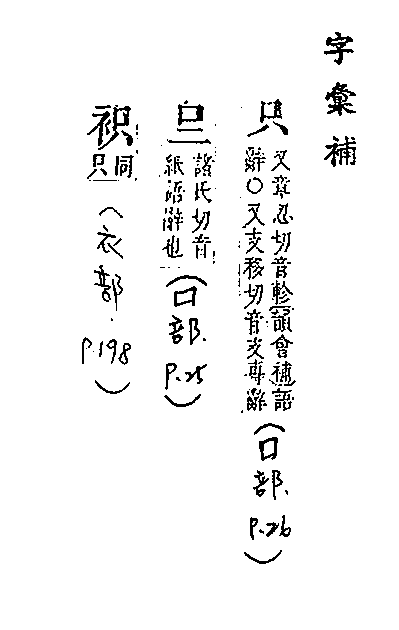 字彙補
只 又章忍切音軫韻會補語
辭○又支移切音支專辭
(口部. P.26)
諸氏切音
紙語辭也
(口部. P.25)
同
只
(衣部. P.198)